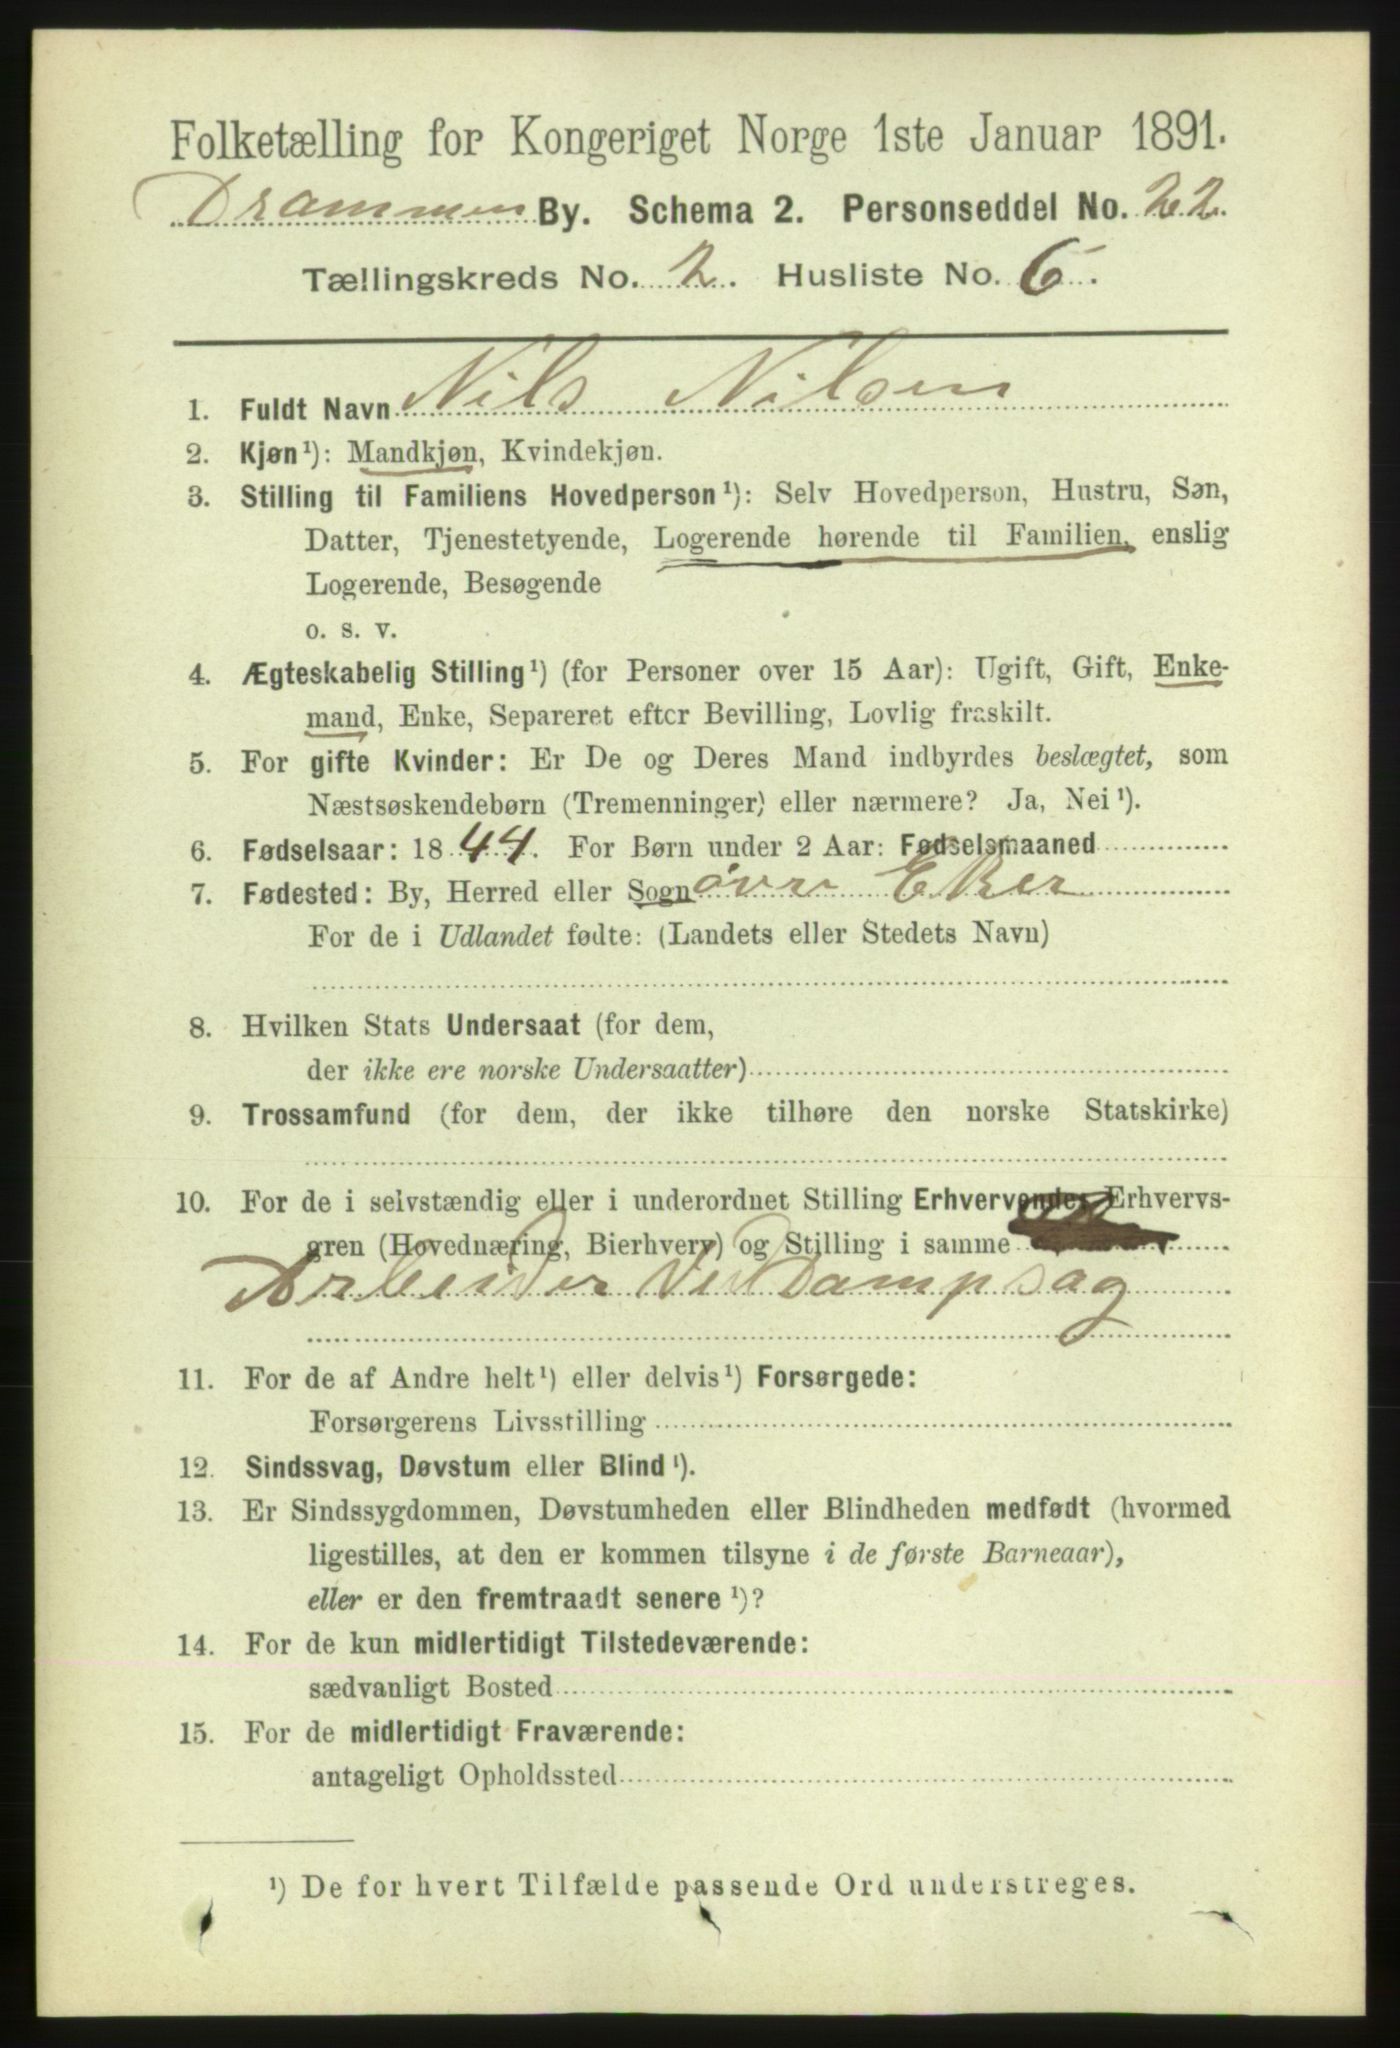 Folketælling for Kongeriget Norge 1ste Januar 1891.
Drammen By. Schema 2. Personseddel No. 22.
Tællingskreds No. 2. Husliste No. 6.
1. Fuldt Navn Nils Nilsen
2. Kjøn¹): Mandkjøn, Kvindekjøn.
3. Stilling til Familiens Hovedperson¹): Selv Hovedperson, Hustru, Søn,
Datter, Tjenestetyende, Logerende hørende til Familien, enslig
Logerende, Besøgende
o. s. v.
4. Ægteskabelig Stilling¹) (for Personer over 15 Aar): Ugift, Gift, Enke-
mand, Enke, Separeret efter Bevilling, Lovlig fraskilt.
5. For gifte Kvinder: Er De og Deres Mand indbyrdes beslægtet, som
Næstsøskendebørn (Tremenninger) eller nærmere? Ja, Nei¹).
6. Fødselsaar: 1844. For Børn under 2 Aar: Fødselsmaaned
7. Fødested: By, Herred eller Sogn øvre Eker
For de i Udlandet fødte: (Landets eller Stedets Navn)
8. Hvilken Stats Undersaat (for dem,
der ikke ere norske Undersaatter)
9. Trossamfund (for dem, der ikke tilhøre den norske Statskirke)
10. For de i selvstændig eller i underordnet Stilling Erhvervendes Erhvervs-
gren (Hovednæring, Bierhverv) og Stilling i samme
Arbeider Ved Dampsag
11. For de af Andre helt¹) eller delvis¹) Forsørgede:
Forsørgerens Livsstilling
12. Sindssvag, Døvstum eller Blind¹).
13. Er Sindssygdommen, Døvstumheden eller Blindheden medfødt (hvormed
ligestilles, at den er kommen tilsyne i de første Barneaar),
eller er den fremtraadt senere¹)?
14. For de kun midlertidigt Tilstedeværende:
sædvanligt Bosted
15. For de midlertidigt Fraværende:
antageligt Opholdssted
¹) De for hvert Tilfælde passende Ord understreges.